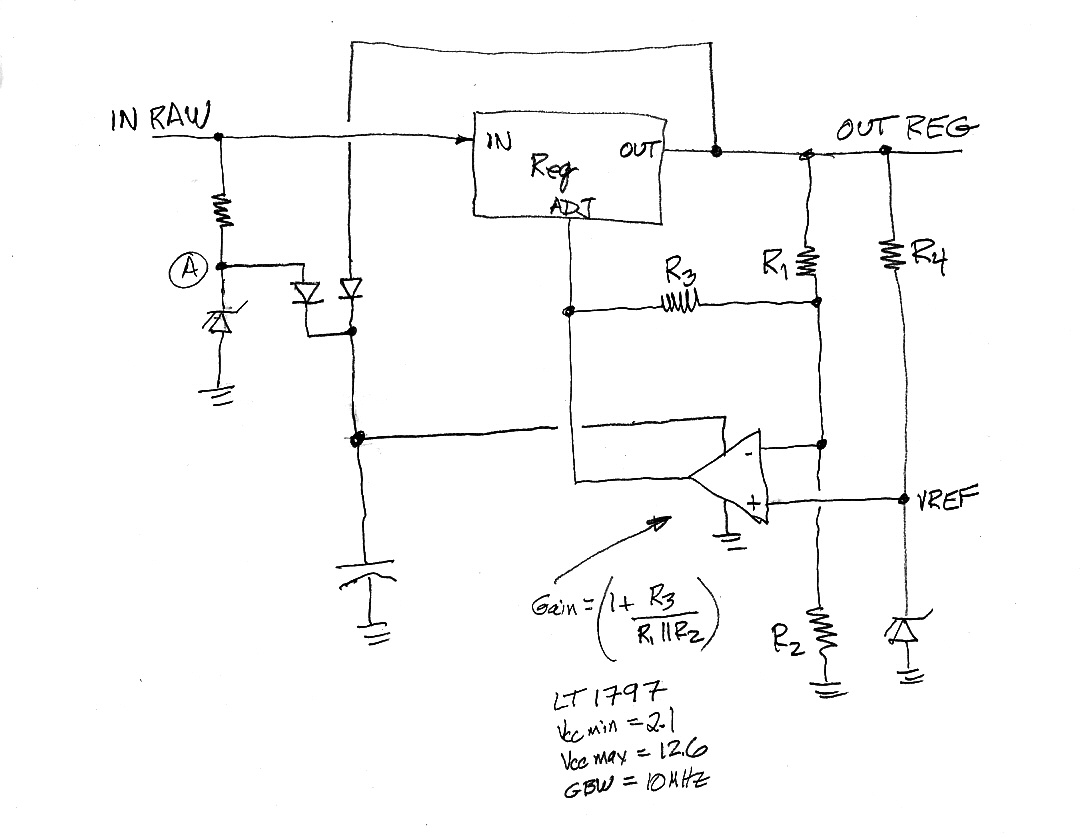 IN RAW
OUT REG
IN
OUT
Reg
ADJ
A
R3
R1
R4
-
+
VREF
Gain = (1 + R3 / R1 || R2)
R2
LT1797
Vcc min = 2.1
Vcc max = 12.6
GBW = 10MHz